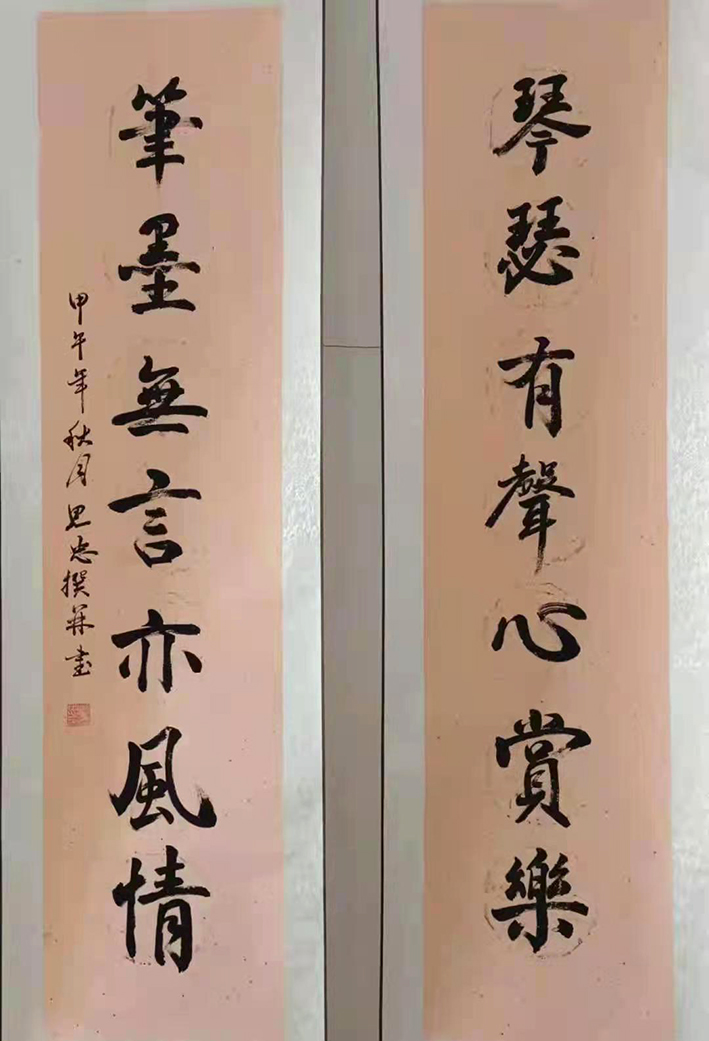 琴瑟有聲心賞樂
筆墨無言亦風情
甲午年秋月思忠撰并書